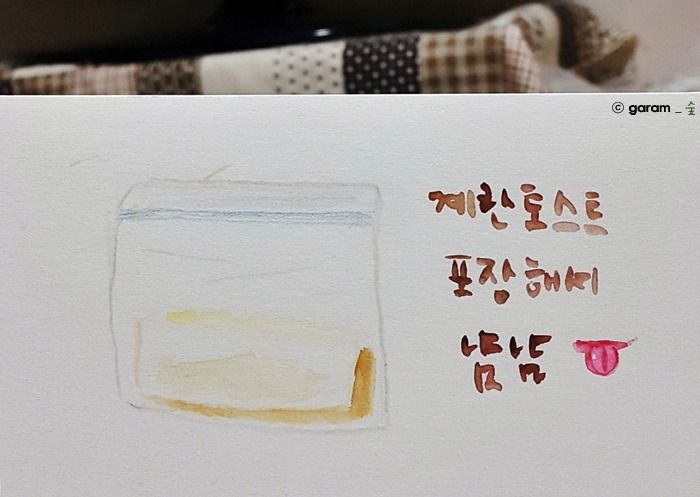 ⓒ garam _ 숲
계란토스트
포장해써
냠냠